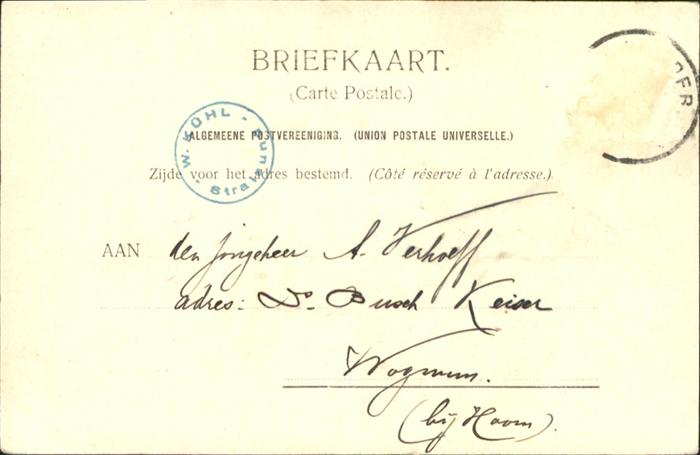 BRIEFKAART.
(Carte Postale.)
ALGEMEENE POSTVEREENIGING. (UNION POSTALE UNIVERSELLE.)
Zijde voor het adres bestemd. (Côté réservé à l'adresse.)
W. KOHL
Stra
AAN den Jongeheer A. Verhoeff
adres: Ds. Busch Keiser
Wognum.
(bij Hoorn).